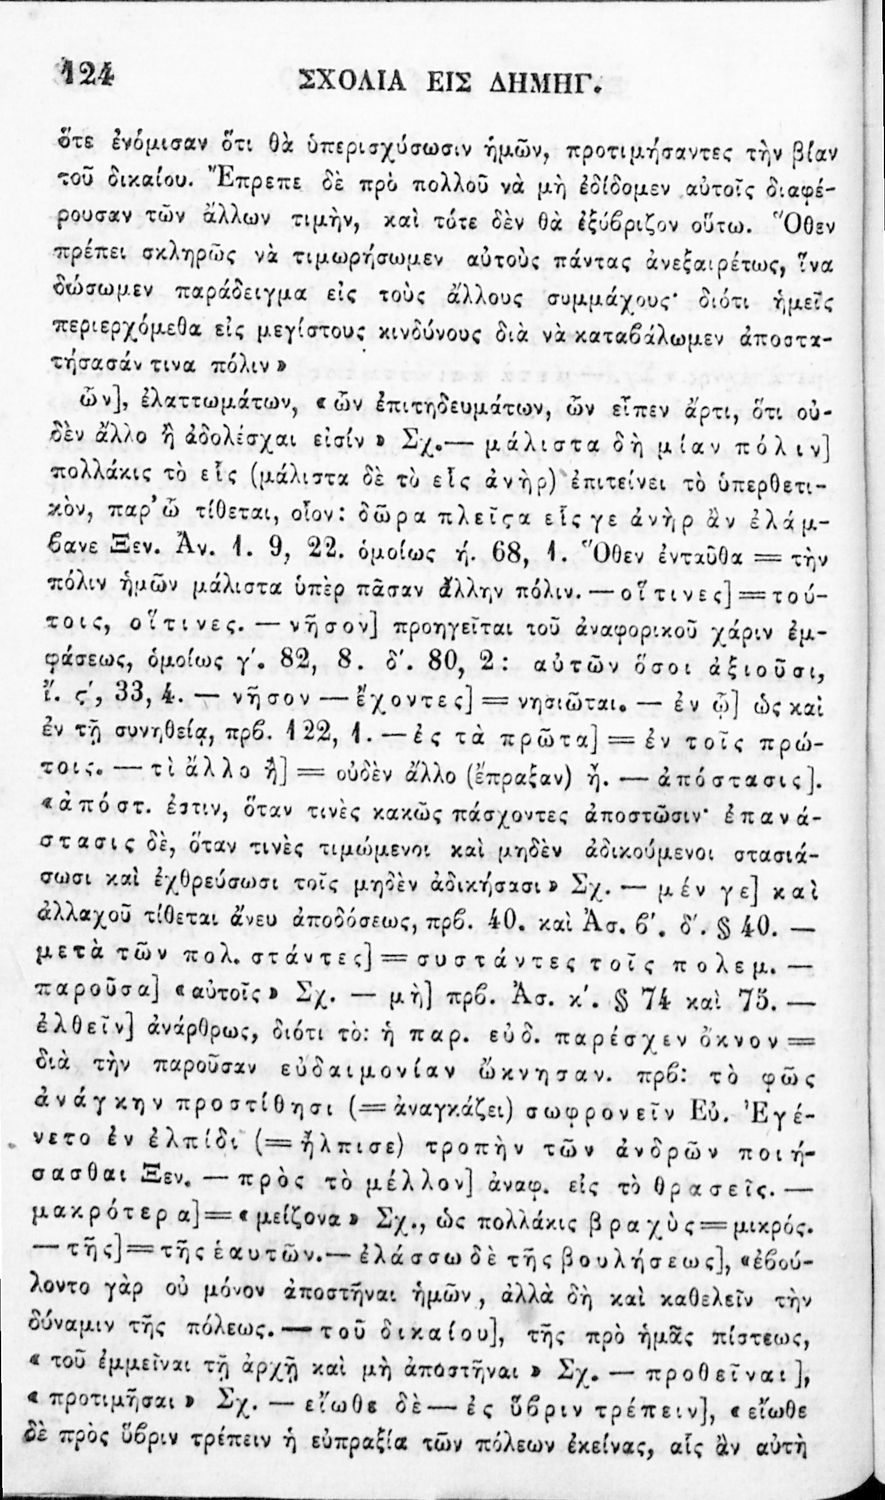 124 ΣΧΟΛΙΑ ΕΙΣ ΔΗΜΗΓ.
ὅτε ἐνόμισαν ὅτι θὰ ὑπερισχύσωσιν ἡμῶν, προτιμήσαντες τὴν βίαν
τοῦ δικαίου. Ἔπρεπε δὲ πρὸ πολλοῦ νὰ μὴ ἐδίδομεν αὐτοῖς διαφέ-
ρουσαν τῶν ἄλλων τιμὴν, καὶ τότε δὲν θὰ ἐξύβριζον οὕτω. Ὅθεν
πρέπει σκληρῶς νὰ τιμωρήσωμεν αὐτοὺς πάντας ἀνεξαιρέτως, ἵνα
δώσωμεν παράδειγμα εἰς τοὺς ἄλλους συμμάχους· διότι ἡμεῖς
περιερχόμεθα εἰς μεγίστους κινδύνους διὰ νὰ καταβάλωμεν ἀποστα-
τήσασάν τινα πόλιν»
ὧν], ἐλαττωμάτων, «ὧν ἐπιτηδευμάτων, ὧν εἶπεν ἄρτι, ὅτι οὐ-
δὲν ἄλλο ἢ ἀδολέσχαι εἰσίν» Σχ.— μάλιστα δὴ μίαν πόλιν]
πολλάκις τὸ εἷς (μάλιστα δὲ τὸ εἷς ἀνὴρ) ἐπιτείνει τὸ ὑπερθετι-
κὸν, παρ' ᾧ τίθεται, οἷον: δῶρα πλεῖϛα εἷς γε ἀνὴρ ἂν ἐλάμ-
βανε Ξεν. Ἀν. 1. 9, 22. ὁμοίως ή. 68, 1. Ὅθεν ἐνταῦθα = τὴν
πόλιν ἡμῶν μάλιστα ὑπὲρ πᾶσαν ἄλλην πόλιν. — οἵτινες] = τού-
τοις, οἵτινες. — νῆσον] προηγεῖται τοῦ ἀναφορικοῦ χάριν ἐμ-
φάσεως, ὁμοίως γ΄. 82, 8. δ΄. 80, 2: αὐτῶν ὅσοι ἀξιοῦσι,
ἴ. ϛ΄, 33, 4. — νῆσον — ἔχοντες] = νησιῶται. — ἐν ᾧ] ὡς καὶ
ἐν τῇ συνηθείᾳ, πρβ. 122, 1. — ἐς τὰ πρῶτα] = ἐν τοῖς πρώ-
τοις. — τὶ ἄλλο ἢ] = οὐδὲν ἄλλο (ἔπραξαν) ἢ. — ἀπόστασις].
«ἀπόστ. ἐστιν, ὅταν τινὲς κακῶς πάσχοντες ἀποστῶσιν· ἐπανά-
στασις δὲ, ὅταν τινὲς τιμώμενοι καὶ μηδὲν ἀδικούμενοι στασιά-
σωσι καὶ ἐχθρεύσωσι τοῖς μηδὲν ἀδικήσασι» Σχ. — μέν γε] καὶ
ἀλλαχοῦ τίθεται ἄνευ ἀποδόσεως, πρβ. 40. καὶ Ἀσ. β΄. δ΄. § 40. —
μετὰ τῶν πολ. στάντες] = συστάντες τοῖς πολεμ. —
παροῦσα] «αὐτοῖς» Σχ. — μὴ] πρβ. Ἀσ. κ΄. § 74 καὶ 75. —
ἐλθεῖν] ἀνάρθρως, διότι τὸ: ἡ παρ. εὐδ. παρέσχεν ὄκνον =
διὰ τὴν παροῦσαν εὐδαιμονίαν ὤκνησαν. πρβ: τὸ φῶς
ἀνάγκην προστίθησι (= ἀναγκάζει) σωφρονεῖν Εὐ. Ἐγέ-
νετο ἐν ἐλπίδι (= ἤλπισε) τροπὴν τῶν ἀνδρῶν ποιή-
σασθαι Ξεν. — πρὸς τὸ μέλλον] ἀναφ. εἰς τὸ θρασεῖς. —
μακρότερα] = «μείζονα» Σχ., ὡς πολλάκις βραχὺς = μικρός.
— τῆς] = τῆς ἑαυτῶν.— ἐλάσσω δὲ τῆς βουλήσεως], «ἐβού-
λοντο γὰρ οὐ μόνον ἀποστῆναι ἡμῶν, ἀλλὰ δὴ καὶ καθελεῖν τὴν
δύναμιν τῆς πόλεως. — τοῦ δικαίου], τῆς πρὸ ἡμᾶς πίστεως,
« τοῦ ἐμμεῖναι τῇ ἀρχῇ καὶ μὴ ἀποστῆναι » Σχ. — προθεῖναι],
« προτιμῆσαι » Σχ. — εἴωθε δὲ — ἐς ὕβριν τρέπειν], «εἴωθε
δὲ πρὸς ὕβριν τρέπειν ἡ εὐπραξία τῶν πόλεων ἐκείνας, αἷς ἂν αὐτὴ